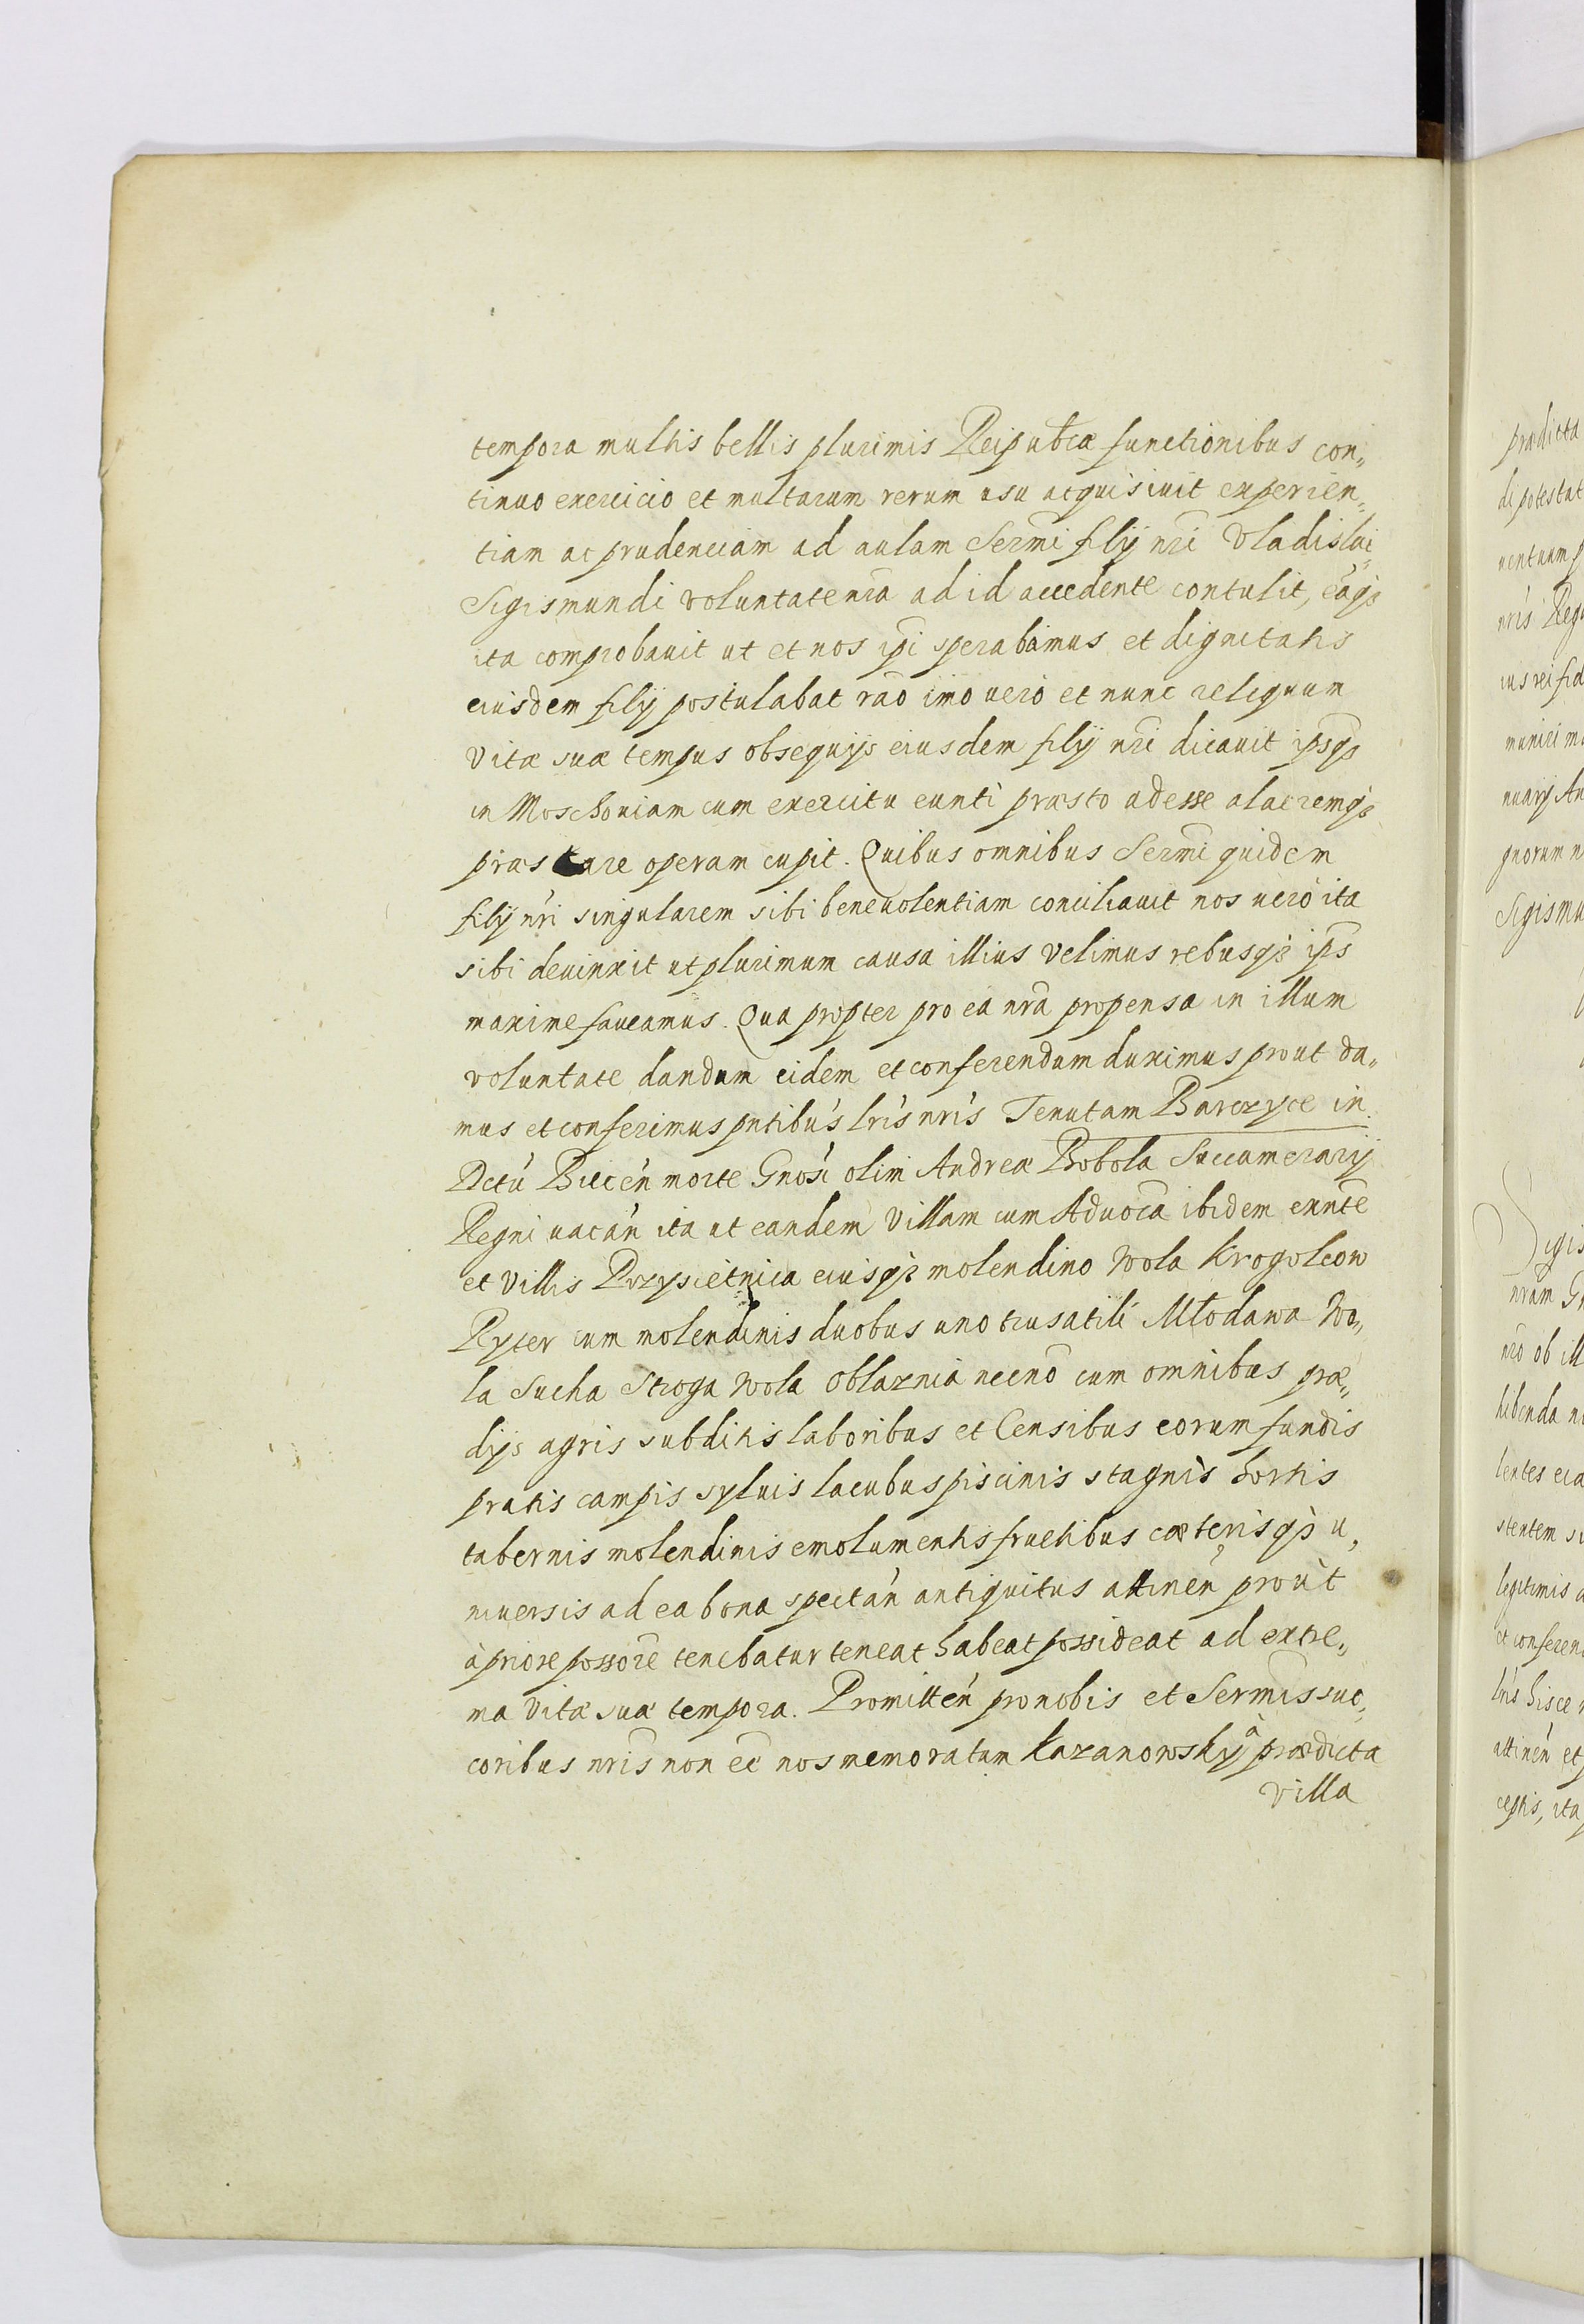 tempora multis bellis plurimis Reipubcæ functionibus con„
tinuo exercicio et multarum rerum usu acquisiuit experien„
tiam ac prudenciam ad aulam Sermi filij nri Vladislai
Sigismundi voluntate nra ad id accedente contulit, eaqȝ
ita comprobauit ut et nos ipi sperabamus et dignitatis
eiusdem filij postulabat rao imo uero et nunc reliquum
Vitæ suæ tempus obsequijs eiusdem filij nri dicauit ipsqȝ
in Moschouiam cum exercitu eunti præsto adesse alacremqȝ
præstare operam cupit. Quibus omnibus Sermi quidem
filij nri singularem sibi beneuolentiam conciliauit nos uero ita
sibi deuinxit ut plurimum causa illius Velimus rebusqȝ ips
maxime faueamus. Qua propter pro ea nra propensa in illum
voluntate dandum eidem et conferendum duximus prout da„
mus et conferimus pntibus lris nris Tenutam Barczyce in
Dctu Biecen morte Gnosi olim Andreæ Bobola Succamerarij
Regni vacan ita ut eandem Villam cum Aduoca ibidem exnte
et Villis Przysietnica eiusqȝ molendino Wola Krogolcow
Ryter cum molendinis duobus uno trusatili Młodawa Wo„
la Sucha Stroga Wola Oblaznia necno cum omnibus præ„
dijs agris subditis laboribus et Censibus eorum fundis
pratis campis syluis lacubus piscinis stagnis hortis
tabernis molendinis emolumentis fructibus cæterisqȝ u„
niuersis ad ea bona spectan antiquitus attinen prout
à priore possore tenebatur teneat habeat possideat ad extre„
ma Vitæ suæ tempora. Promitten pro nobis et Sermis suc„
coribus nris non ee nos memoratum Kazanowsky à prædicta
villa